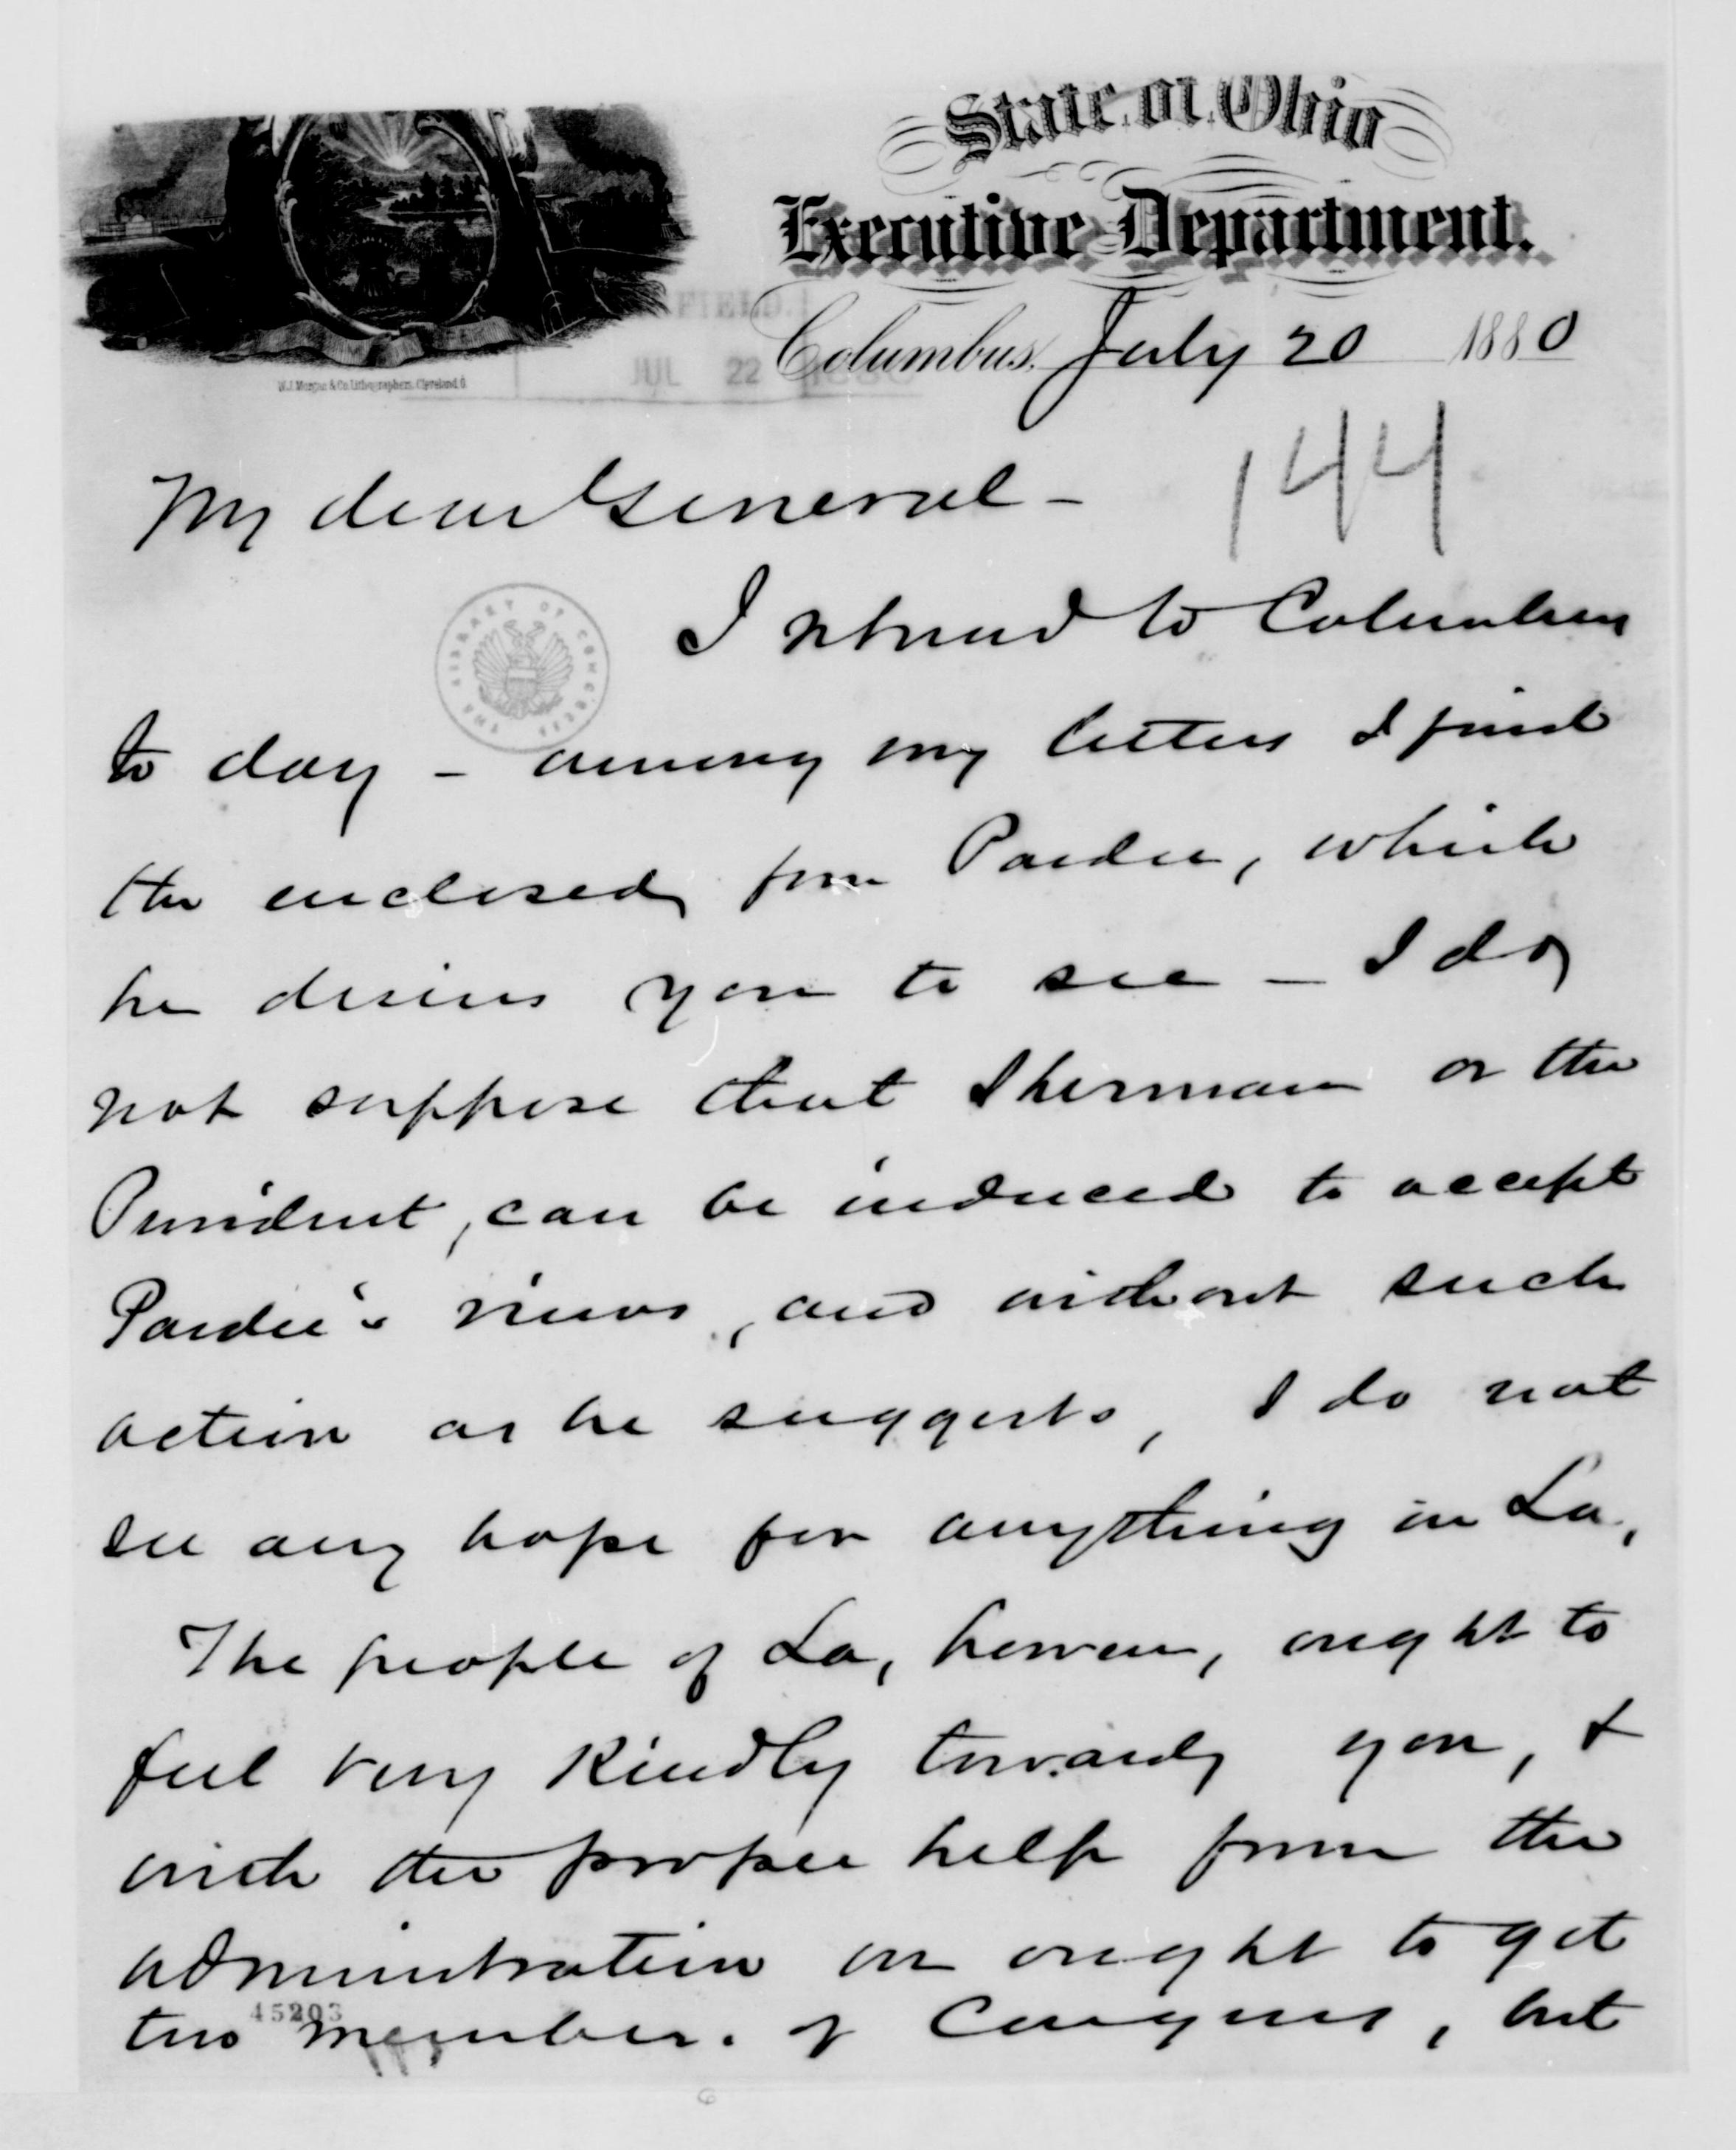 State of Ohio
Executive Department.
FIELD.
JUL 22 1880
Columbus, July 20 1880
W.J. Morgan & Co. Lithographers, Cleveland, O.
144
My dear General -
THE LIBRARY OF CONGRESS
I returned to Columbus
to day - among my letters I find
the enclosed from Pardee, which
he desires you to see - I do
not suppose that Sherman or the
President, can be induced to accept
Pardee's views, and without such
action as he suggests, I do not
see any hope for anything in La,
The people of La, however, ought to
feel very kindly towards you, &
with the proper help from the
administration we ought to get
two members of Congress, but
45203